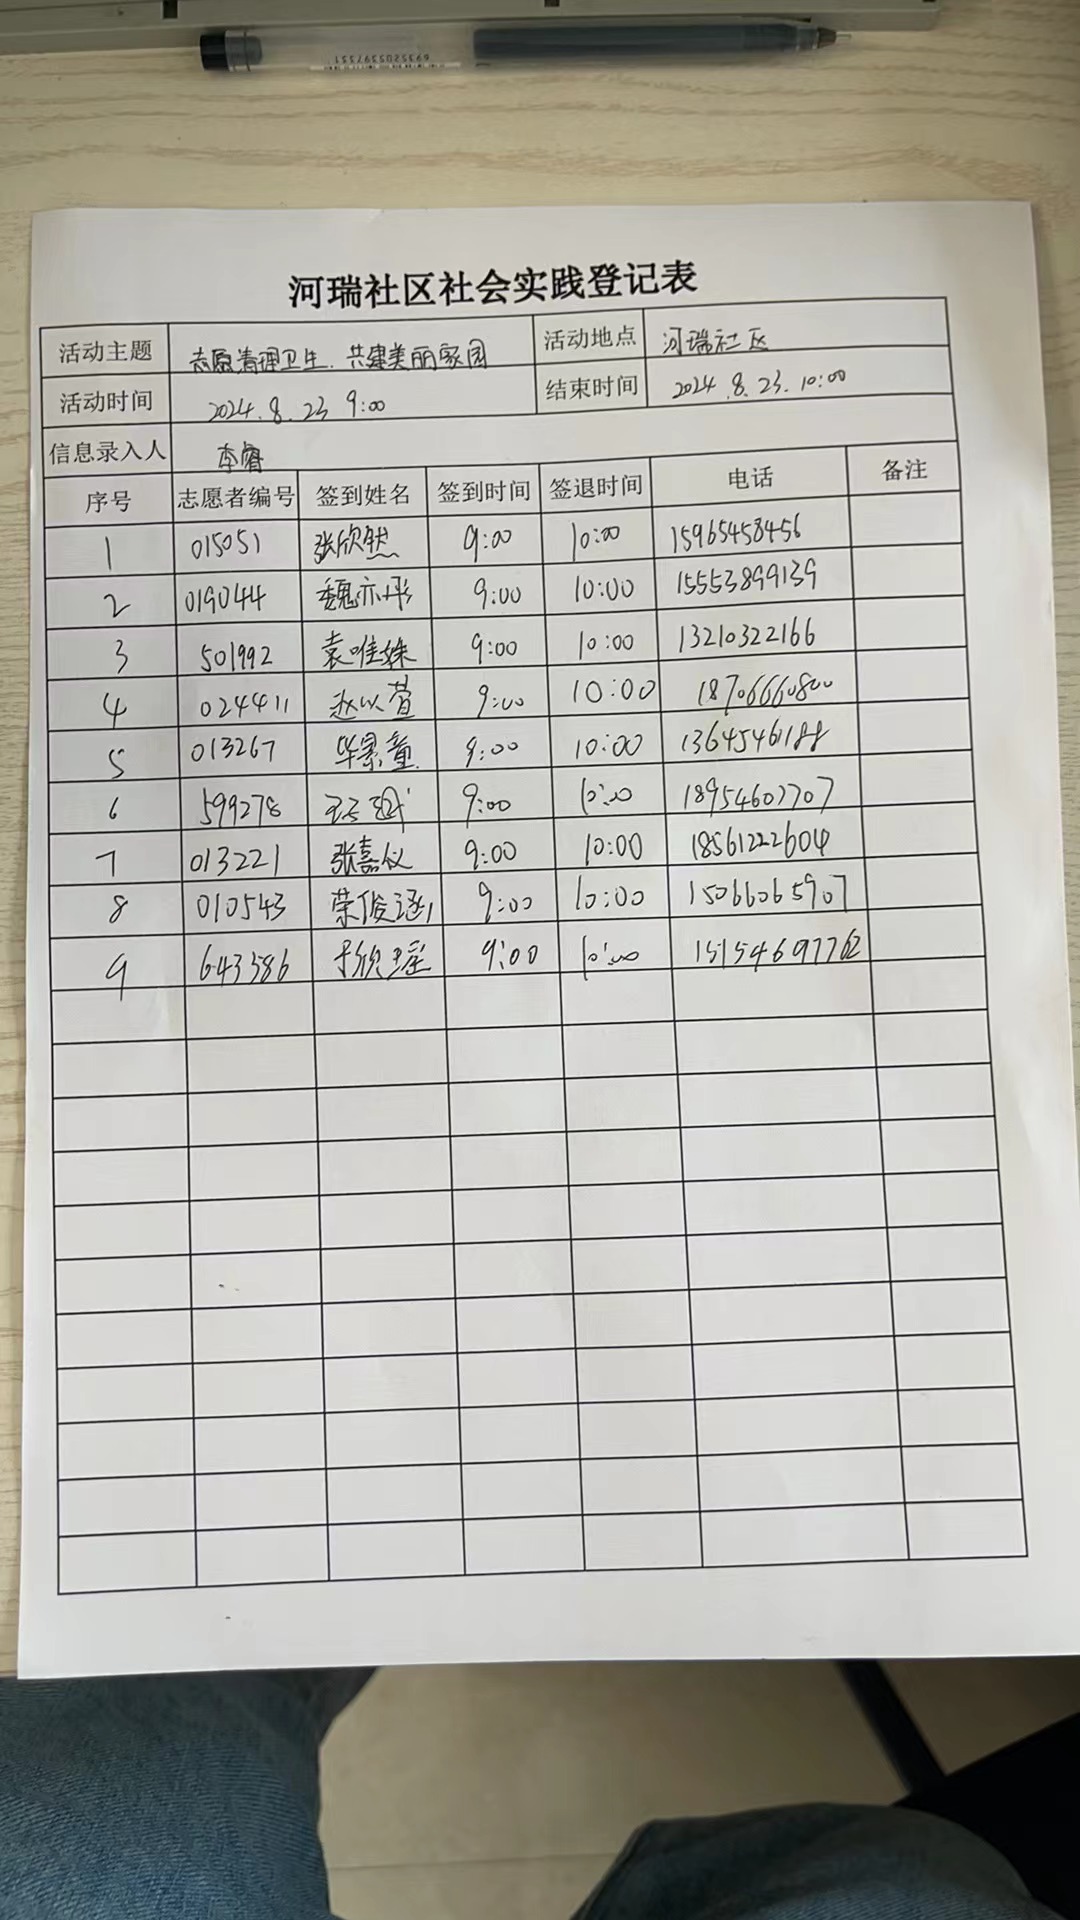 6935205397331
河瑞社区社会实践登记表
活动主题 志愿清理卫生.共建美丽家园 活动地点 河瑞社区
活动时间 2024.8.23 9:00 结束时间 2024.8.23.10:00
信息录入人 李睿
序号 志愿者编号 签到姓名 签到时间 签退时间 电话 备注
1 015051 张欣然 9:00 10:00 15965458456
2 019044 魏亦彤 9:00 10:00 15553899139
3 501992 袁唯姝 9:00 10:00 13210322166
4 024411 赵以萱 9:00 10:00 18706660800
5 013267 毕景童 9:00 10:00 13645461188
6 599278 9:00 10:00 18954607707
7 013221 张嘉仪 9:00 10:00 18561222604
8 010543 荣俊涵 9:00 10:00 15066065907
9 643586 于欣瑶 9:00 10:00 15154697762